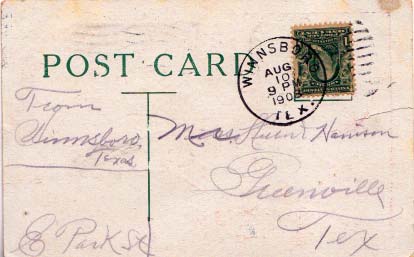 POST CARD
WINNSBORO
AUG
10
9 PM
190
TEX.
From
Winnsboro,
Texas
Mrs. Harrison
Greenville
Tex
E Park St